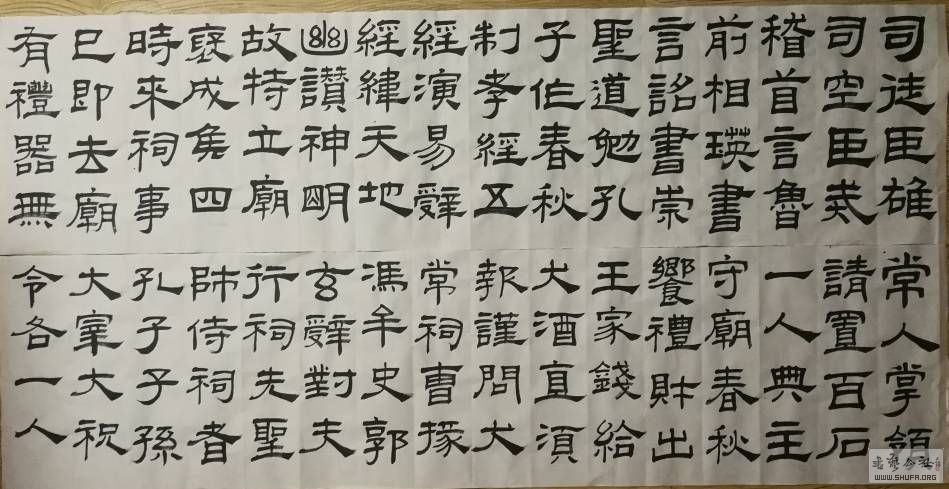 司徒臣雄
司空臣戒
稽首言魯
前相瑛書
言詔書崇
聖道勉孔
子作春秋
制孝經五
經演易辭
經緯天地
幽讃神明
故特立廟
褒成侯四
時來祠事
已即去廟
有禮器無
常人掌領
請置百石
一人典主
守廟春秋
饗禮財出
王家錢給
犬酒直須
報謹問犬
常祠曹掾
馮牟史郭
玄辭對夫
行祠先聖
師侍祠者
孔子子孫
大宰大祝
令各一人
WWW.SHUFA.ORG